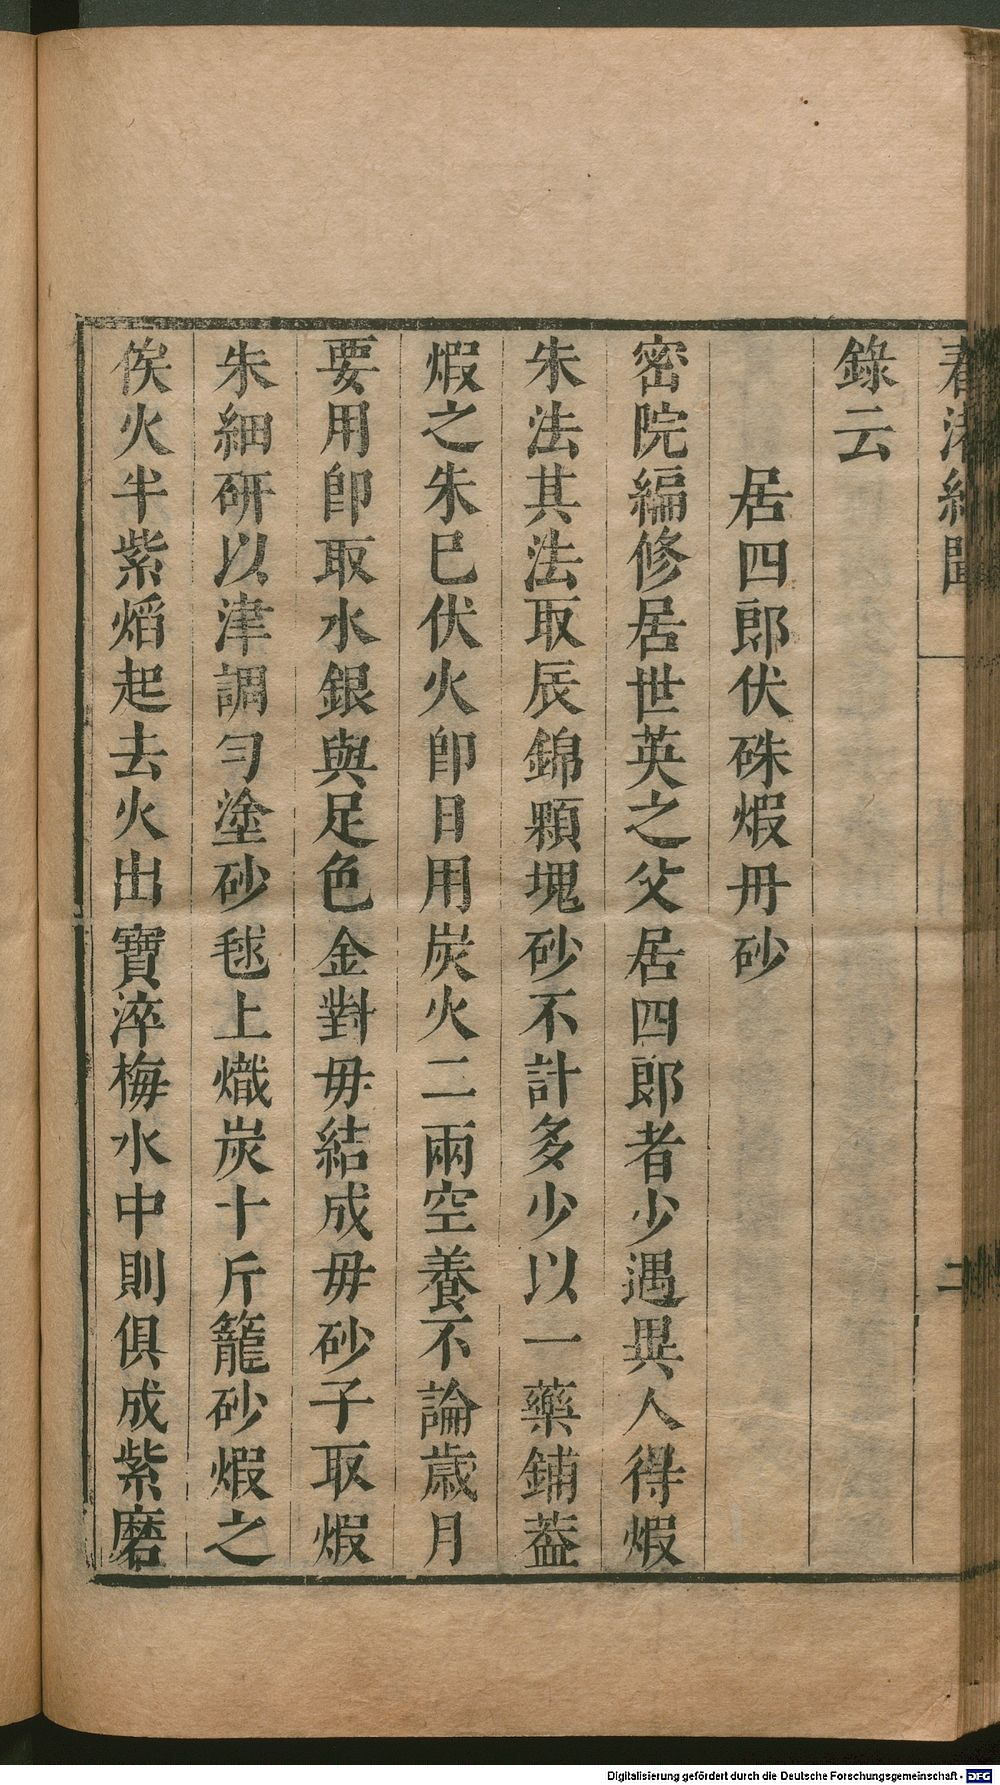 春渚紀聞
二
錄云
居四郎伏硃煆丹砂
密院編修居世英之父居四郎者少遇異人得煆
朱法其法取辰錦顆塊砂不計多少以一藥鋪葢
煆之朱已伏火卽日用炭火二兩空養不論歲月
要用卽取水銀與足色金對毋結成毋砂子取煆
朱細硏以津調勻塗砂毬上熾炭十斤籠砂煆之
俟火半紫熖起去火出寶淬梅水中則俱成紫磨
Digitalisierung gefördert durch die Deutsche Forschungsgemeinschaft - DFG